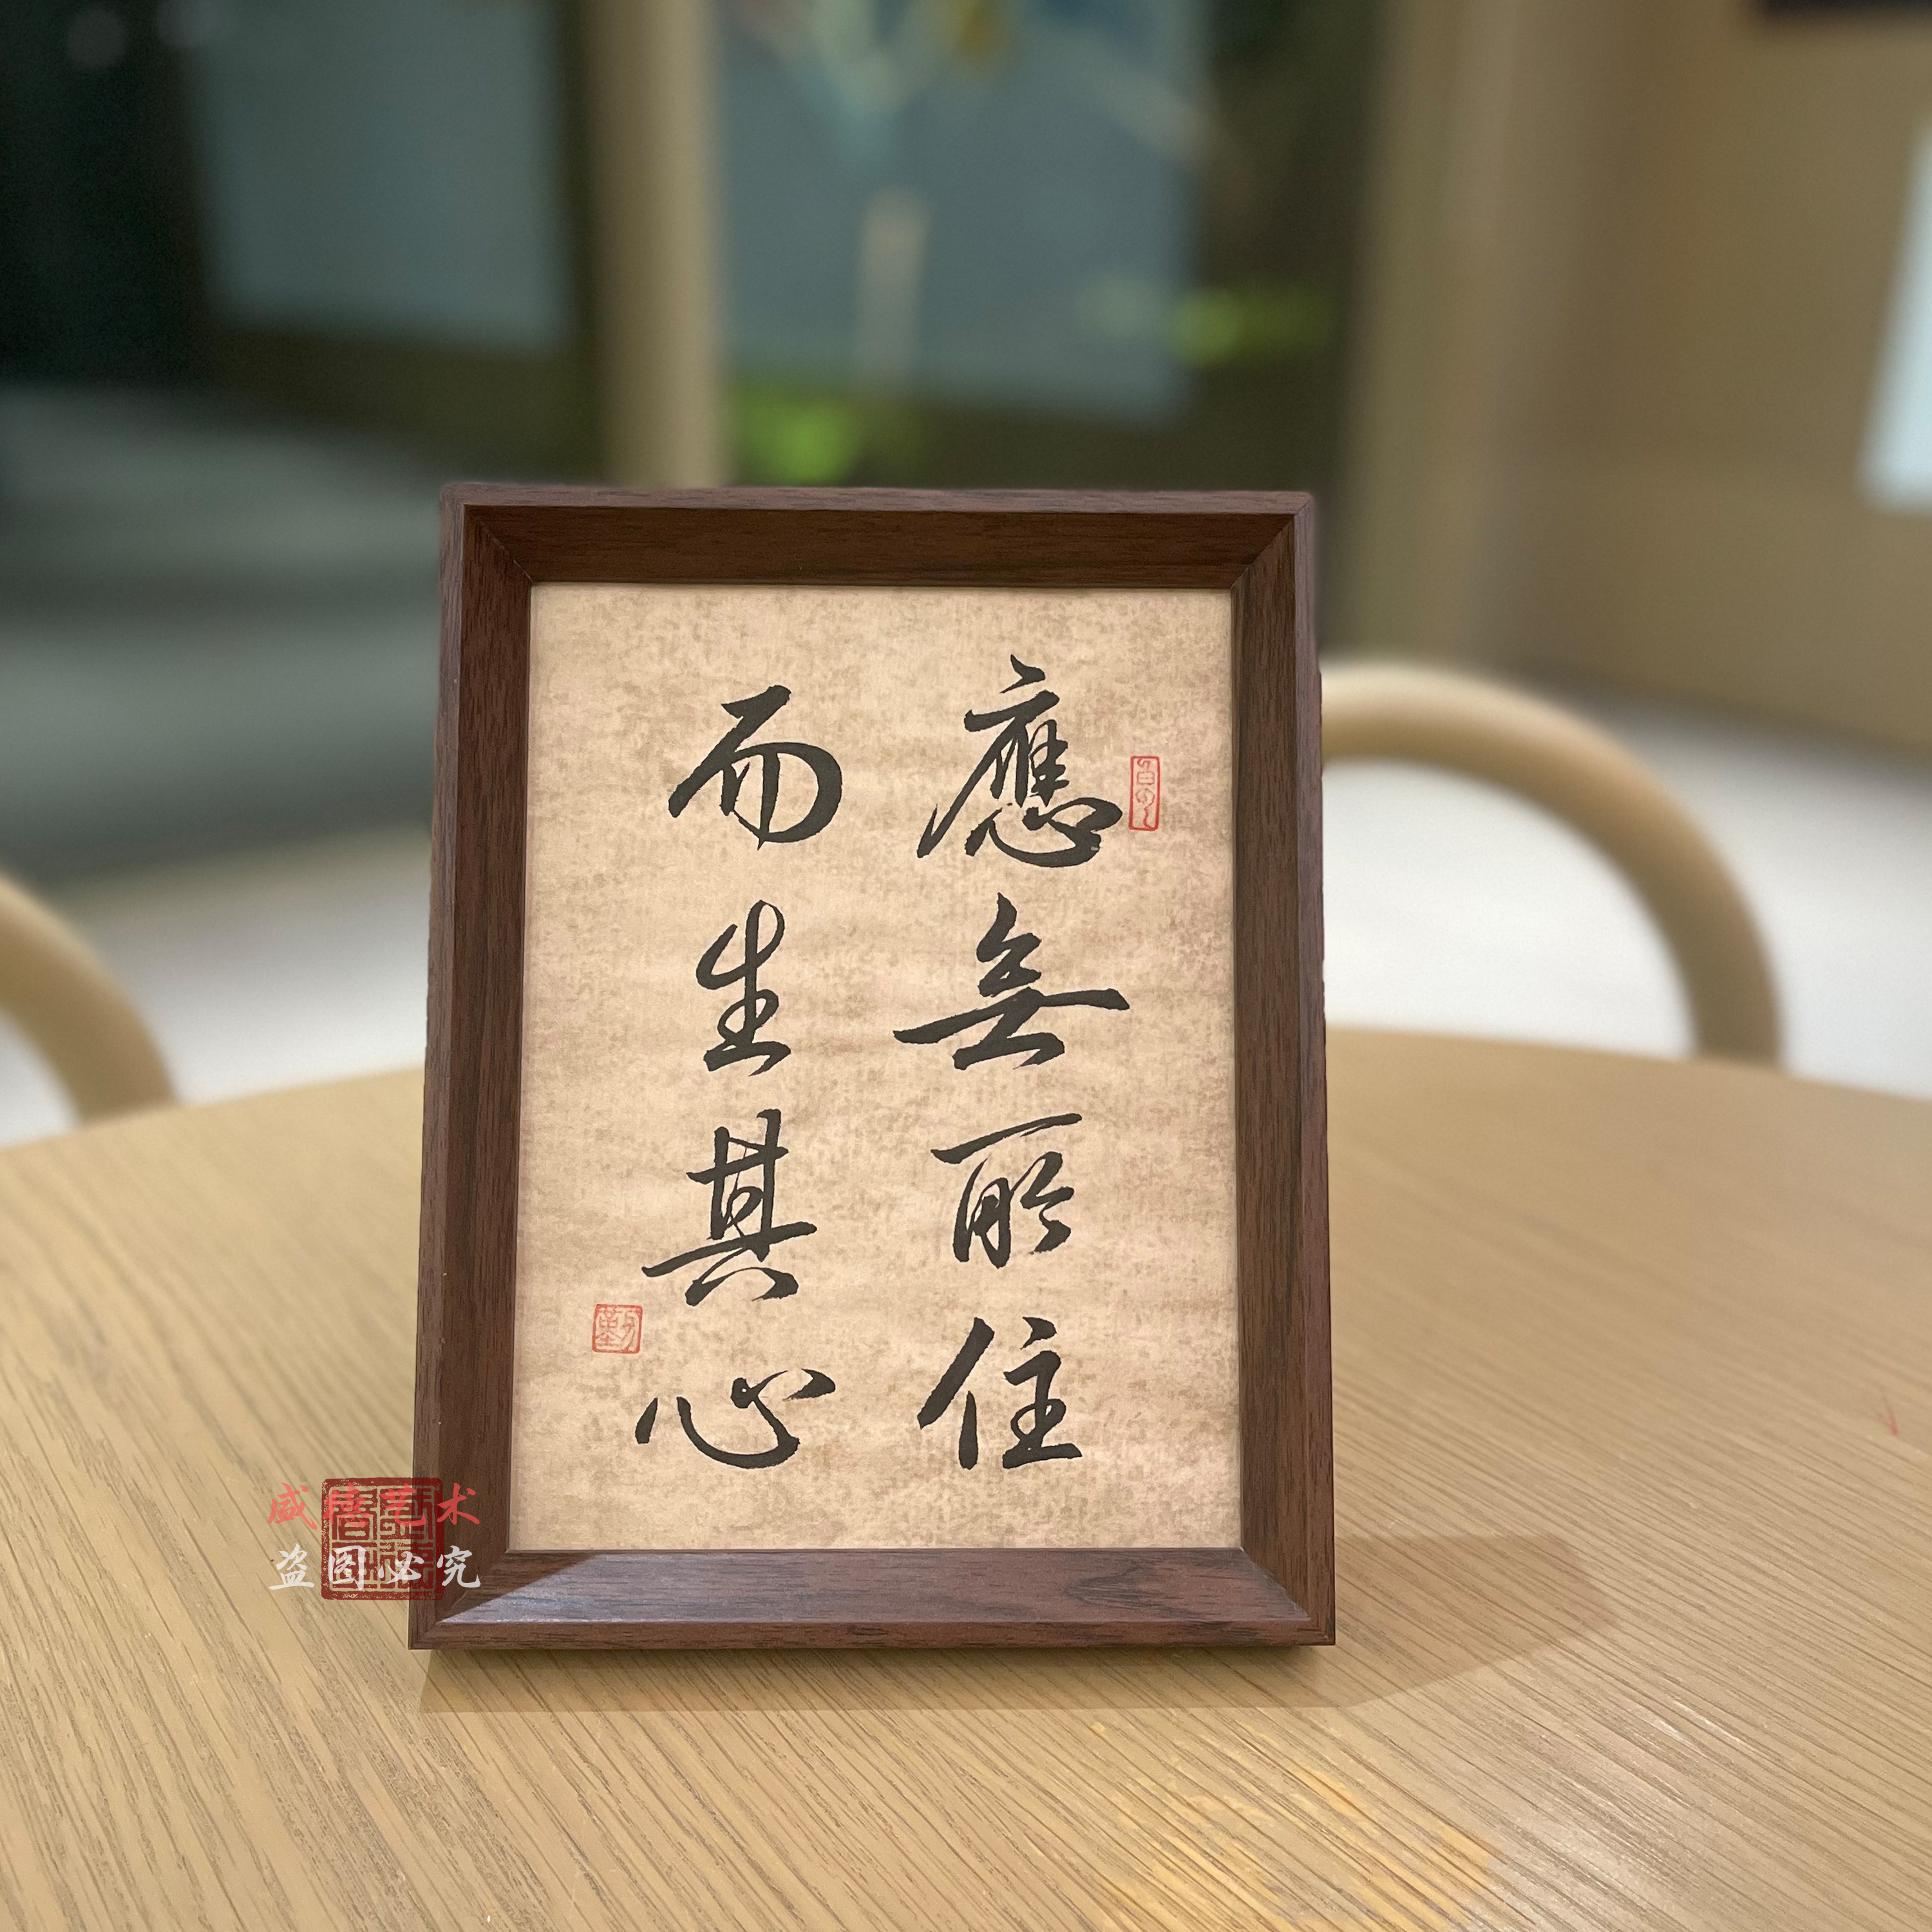 應無所住
而生其心
盛禧艺术
盗图必究